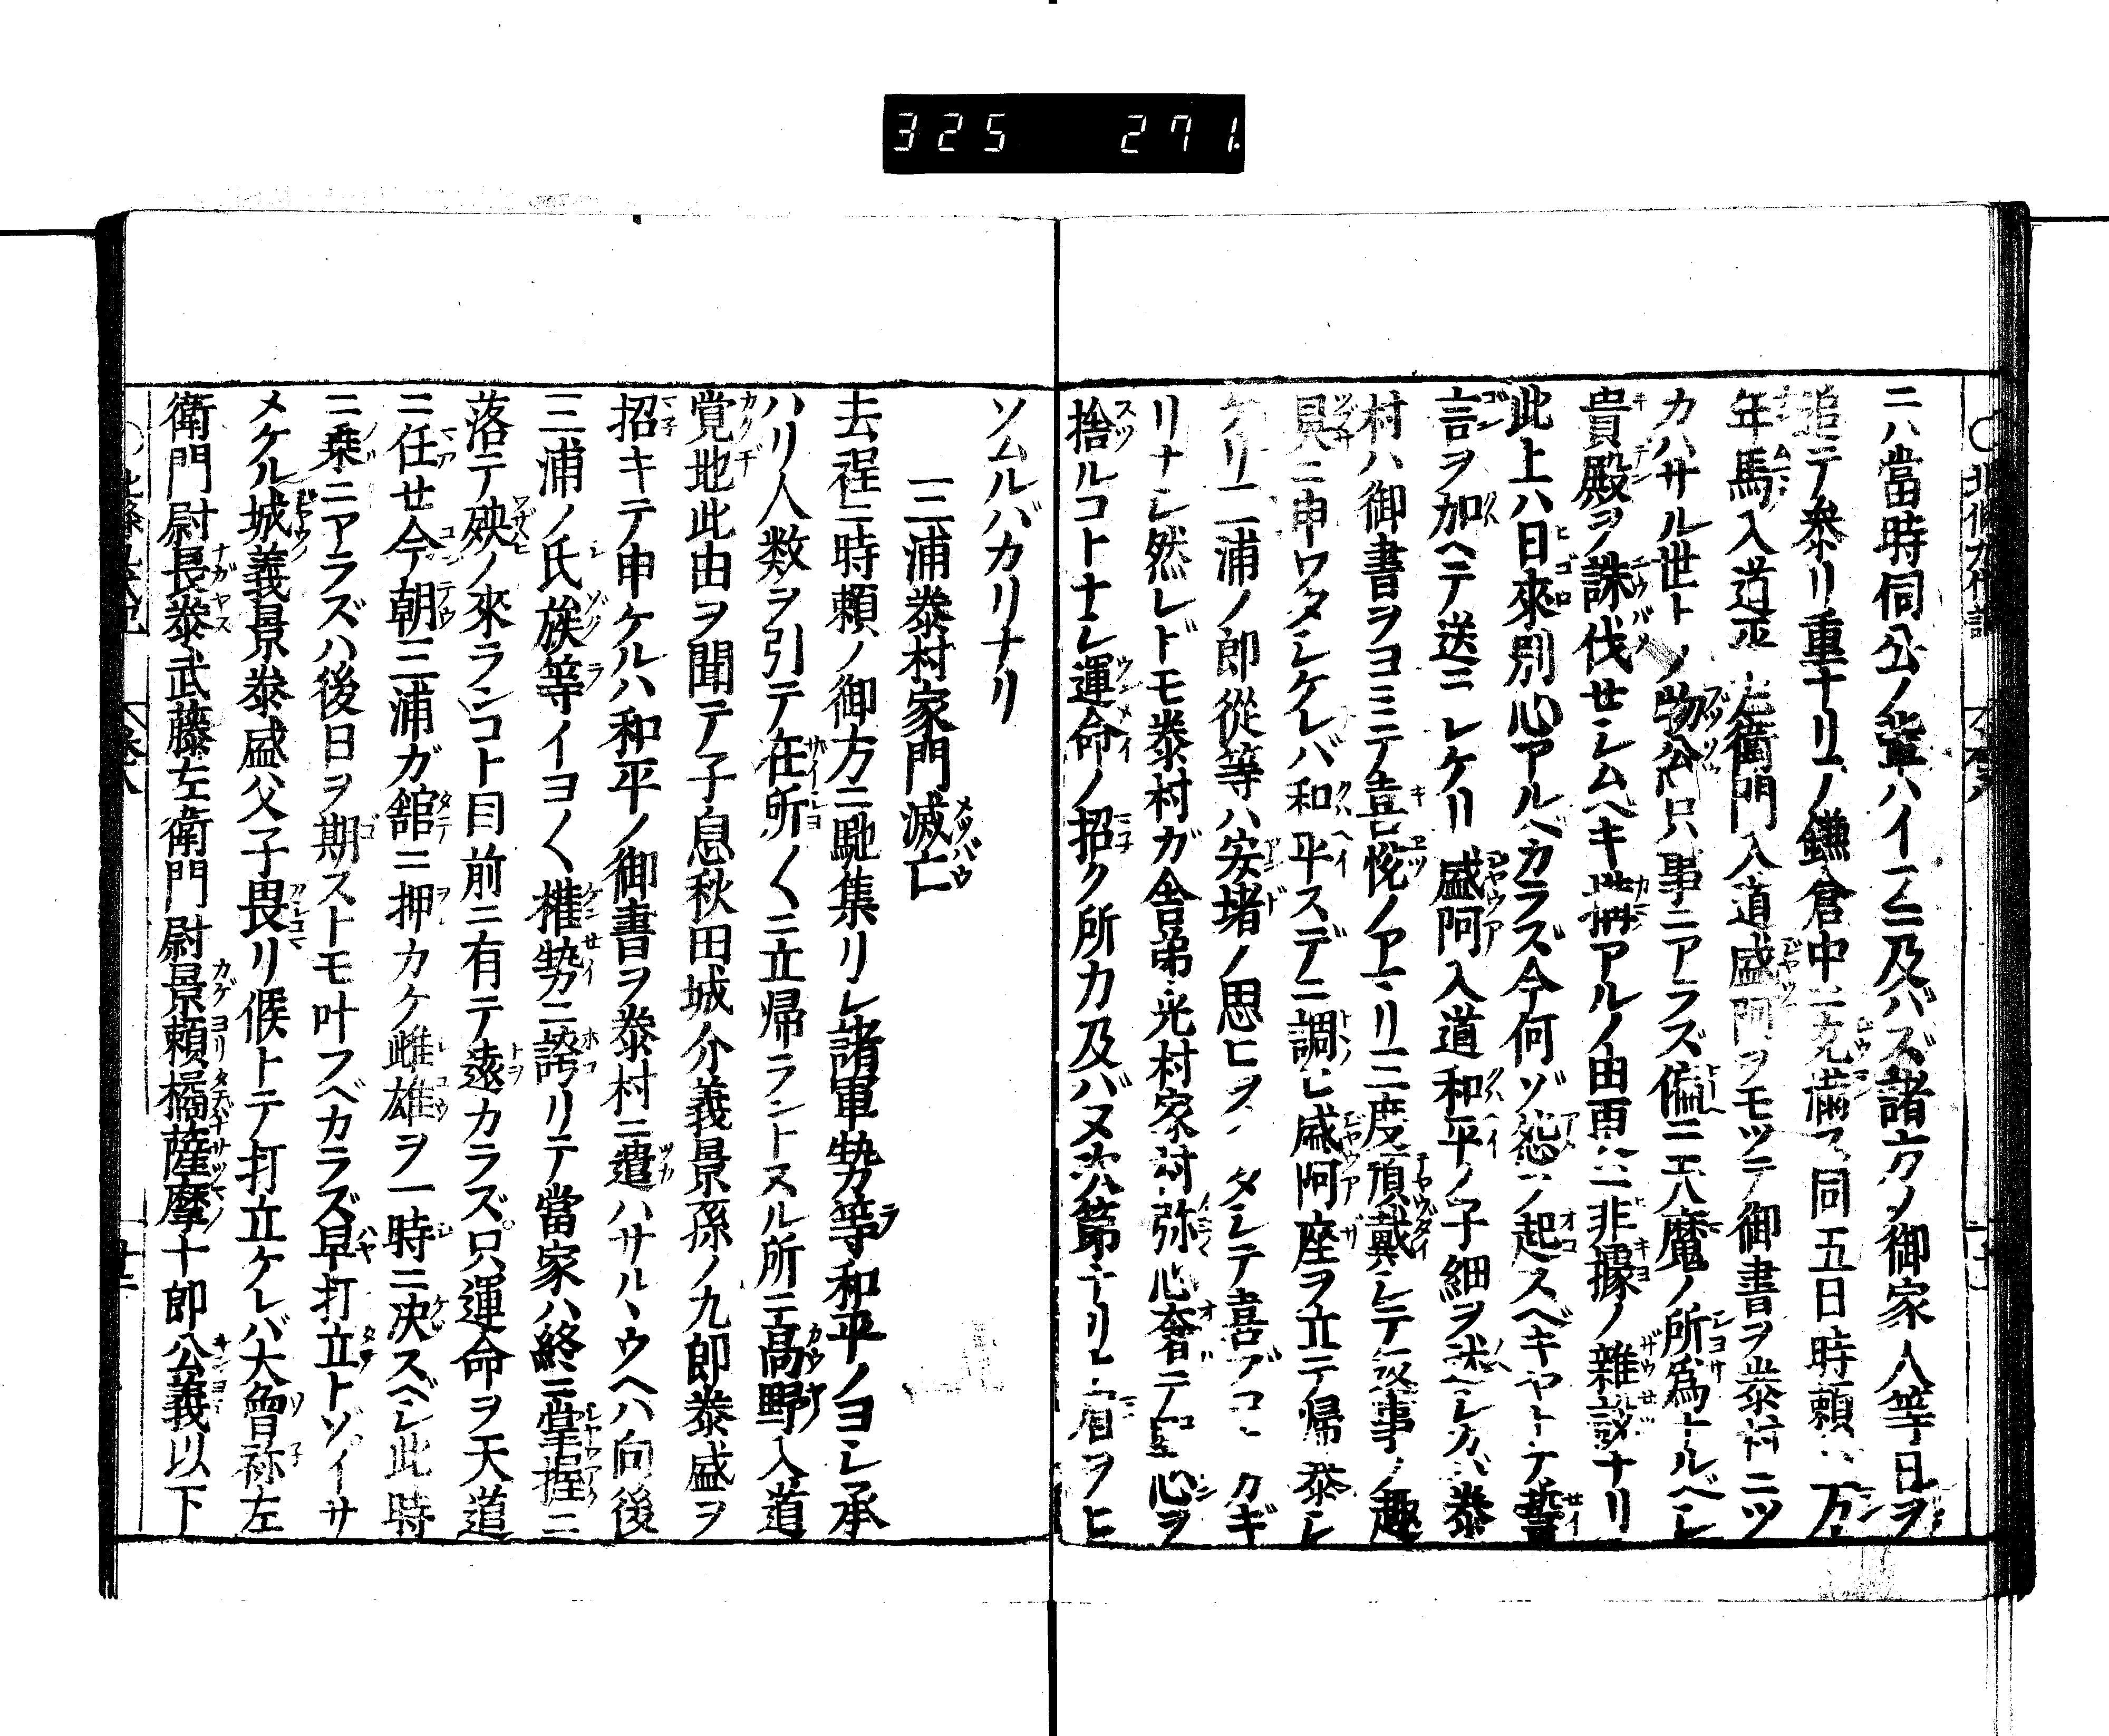 325 271
ニハ當時伺公ノ輩ハイフニ及バズ諸方ノ御家人等日ヲ
追テ參リ重ナリ鎌倉中ニ充満ス同五日時頼ハ万
年馬入道並左衛門入道盛阿ヲモツテ御書ヲ泰村ニツ
カハサル世上ノ物忩只事ニアラズ偏ニ天魔ノ所爲ナルベシ
貴殿ヲ誅伐セシムヘキ搆アルノ由更ニ非據ノ雜説ナリ
此上ハ日來別心アルベカラズ今何ゾ怨ノ起スベキヤトテ誓
言ヲ加ヘテ送ラレケリ盛阿入道和平ノ子細ヲ述シカバ泰
村ハ御書ヲヨミテ喜悦ノアマリ三度頂戴シテ返事ノ趣
具ニ申ワタシケレバ和平スデニ調ヒ盛阿座ヲ立テ帰泰シ
ケリ三浦ノ郎從等ハ安堵ノ思ヒヲナシテ喜ブコトカギ
リナシ然レドモ泰村ガ舎弟光村家村弥心奢テ野心ヲ
捨ルコトナシ運命ノ招ク所力及バヌ次第ナリト眉ヲヒ
ソムルバカリナリ
三浦泰村家門滅亡
去程ニ時頼ノ御方ニ馳集リシ諸軍勢等和平ノヨシ承
ハリ人数ヲ引テ在所〱ニ立帰ラントスル所ニ高野入道
覚地此由ヲ聞テ子息秋田城介義景孫ノ九郎泰盛ヲ
招キテ申ケルハ和平ノ御書ヲ泰村ニ遣ハサルヽウヘハ向後
三浦ノ氏族等イヨ〱權勢ニ誇リテ當家ハ終ニ掌握ニ
落テ殃ノ來ランコト目前ニ有テ遠カラズ只運命ヲ天道
ニ任せ今朝三浦ガ舘ニ押カケ雌雄ヲ一時ニ決スベシ此時
ニ乗ニアラズハ後日ヲ期ストモ叶フベカラズ早打立トゾイサ
メケル城義景泰盛父子畏リ候トテ打立ケレバ大曽祢左
衛門尉長泰武藤左衛門尉景頼橘薩摩十郎公義以下